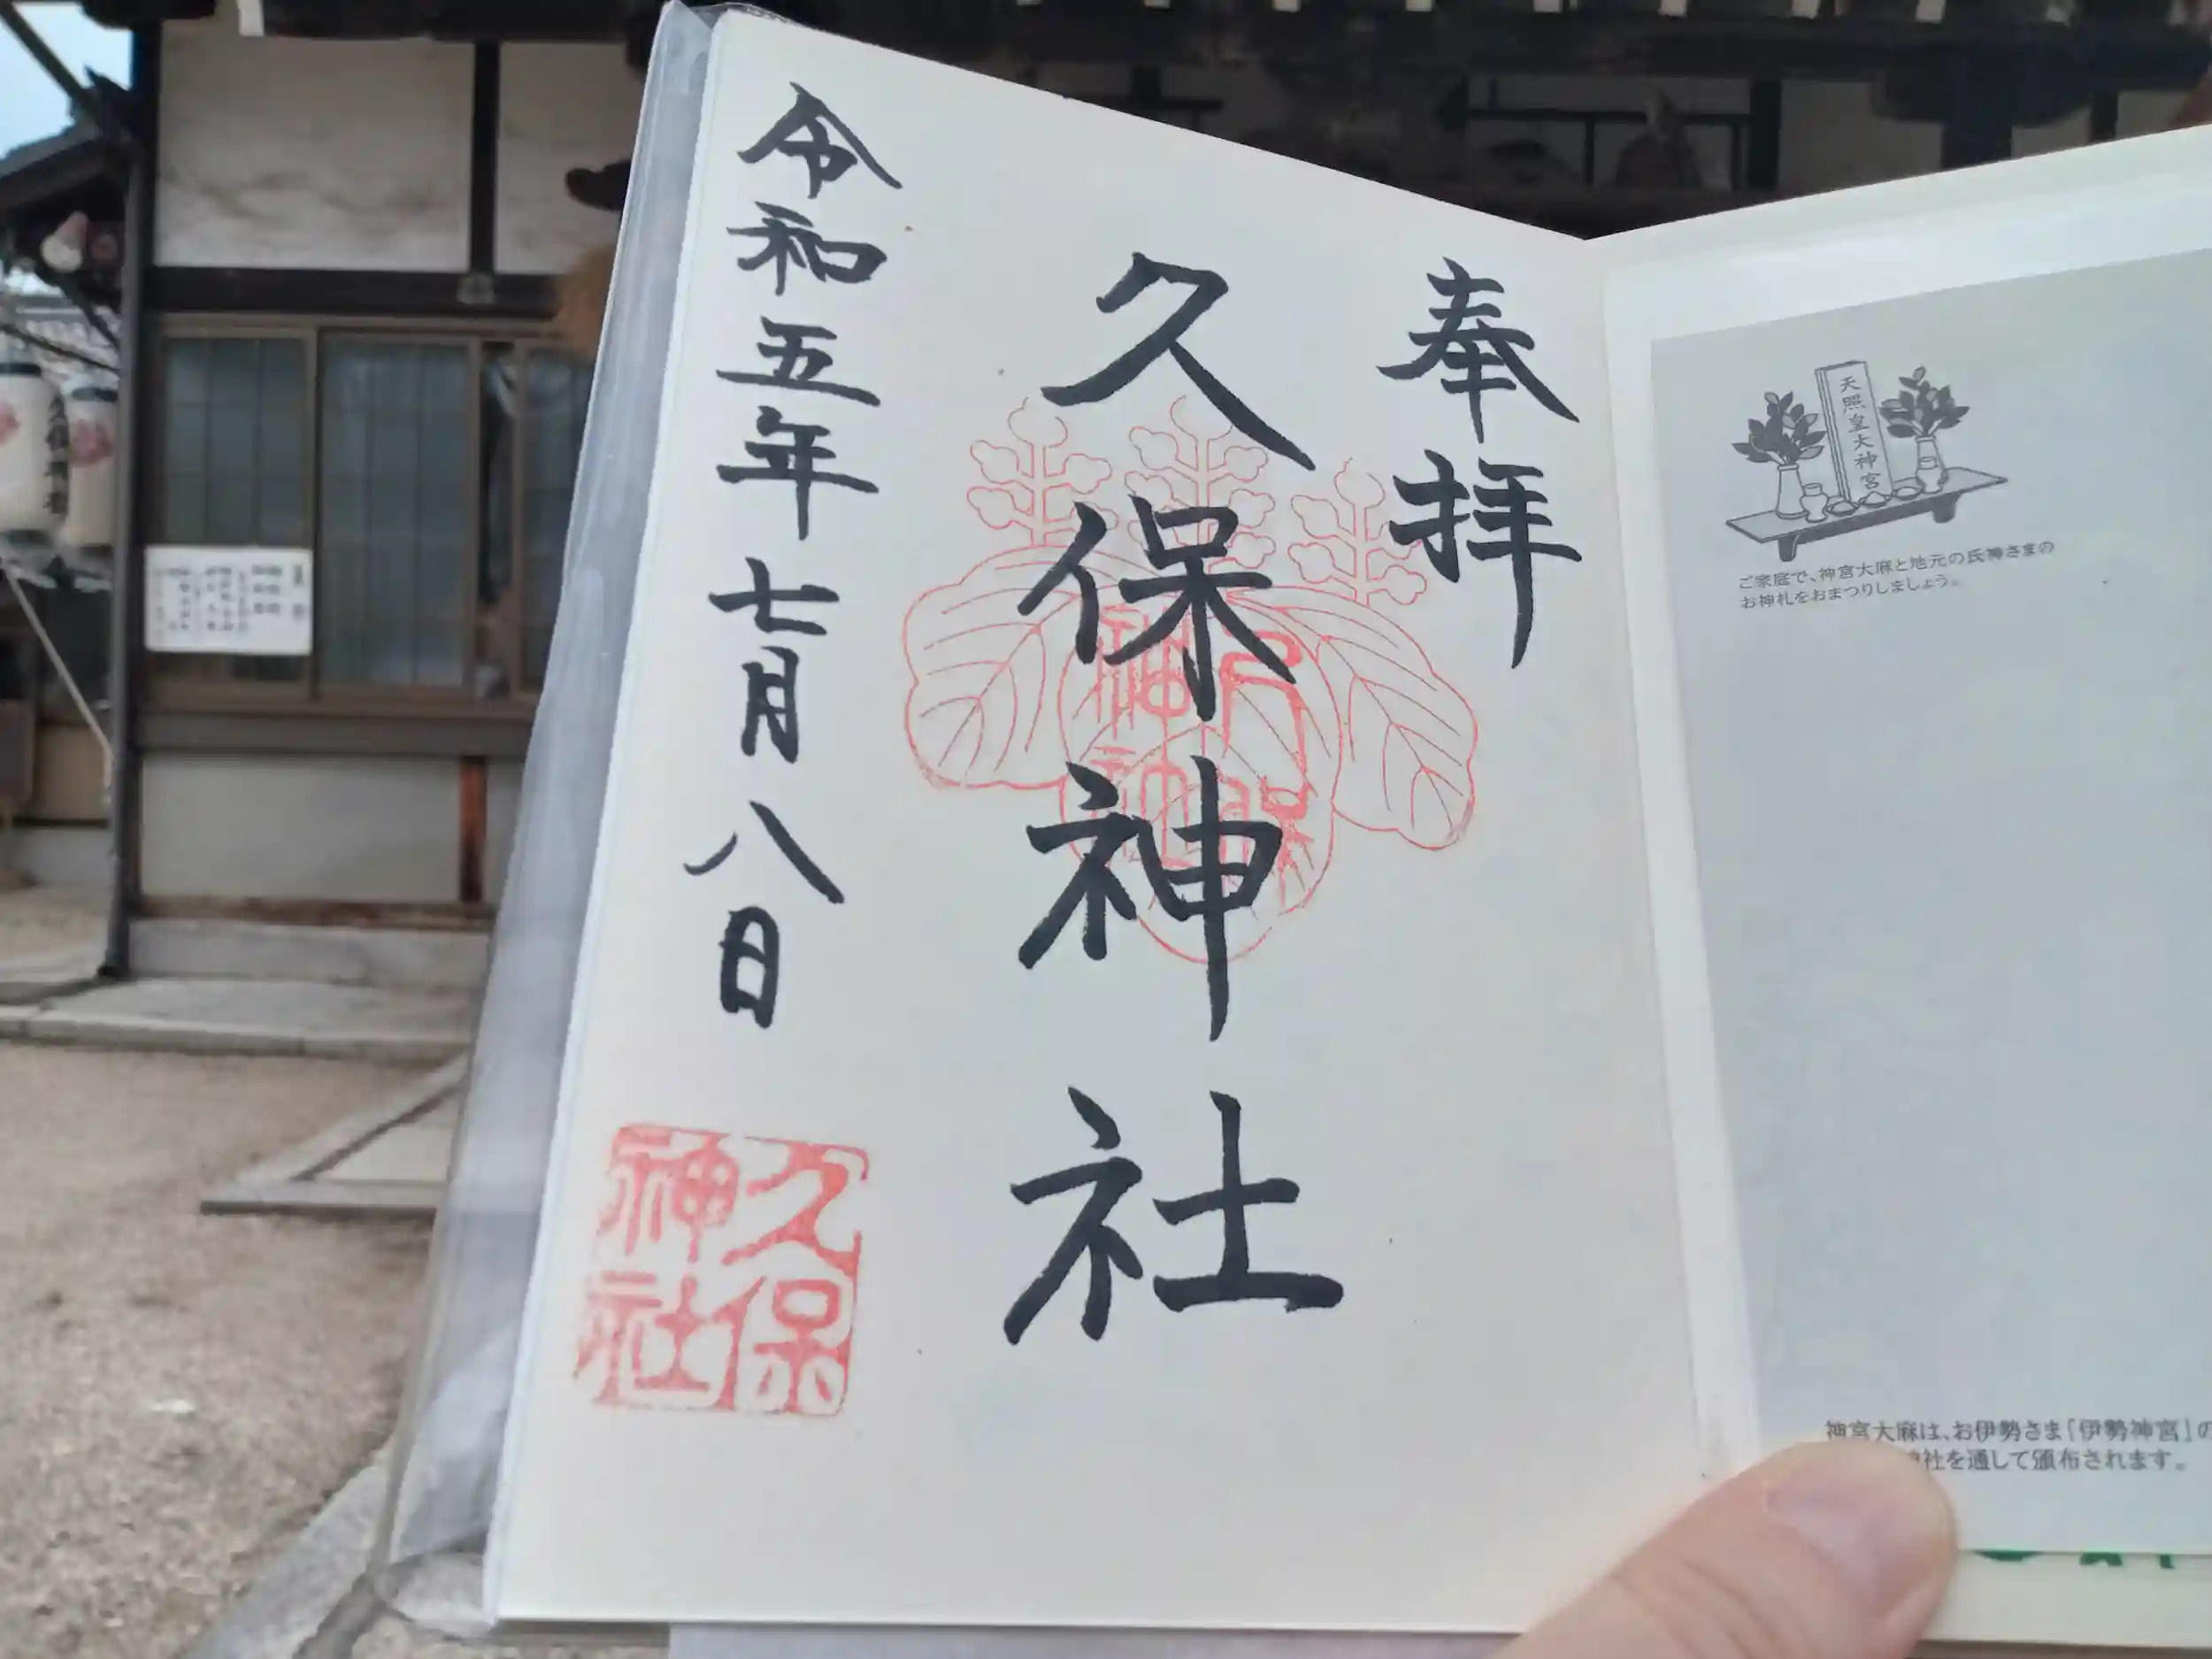 天照皇大神宮
ご家庭で、神宮大麻と地元の氏神さまの
お神札をおまつりしましょう。
神宮大麻は、お伊勢さま「伊勢神宮」の
社を通して頒布されます。
奉拝
久保神社
令和五年七月八日
久保
神社
久保
神社